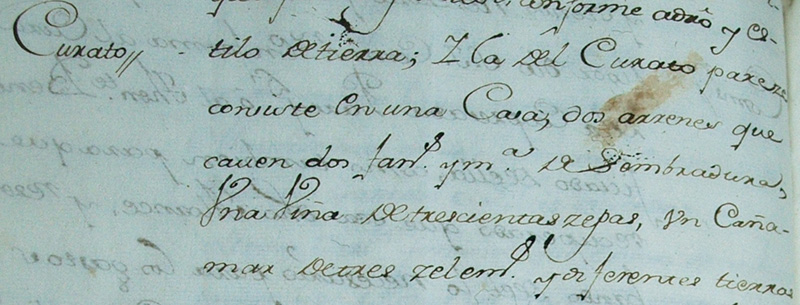 Curato//
conforme adrõ y es-
tilo de tierra; Y la del Curato pareze
consiste En una Casa, dos arrenes que
caven dos fan.s y m.a de Sembradura,
Una Viña de trescientas zepas, Un Caña-
mar de tres zelem.s y diferentes tierras